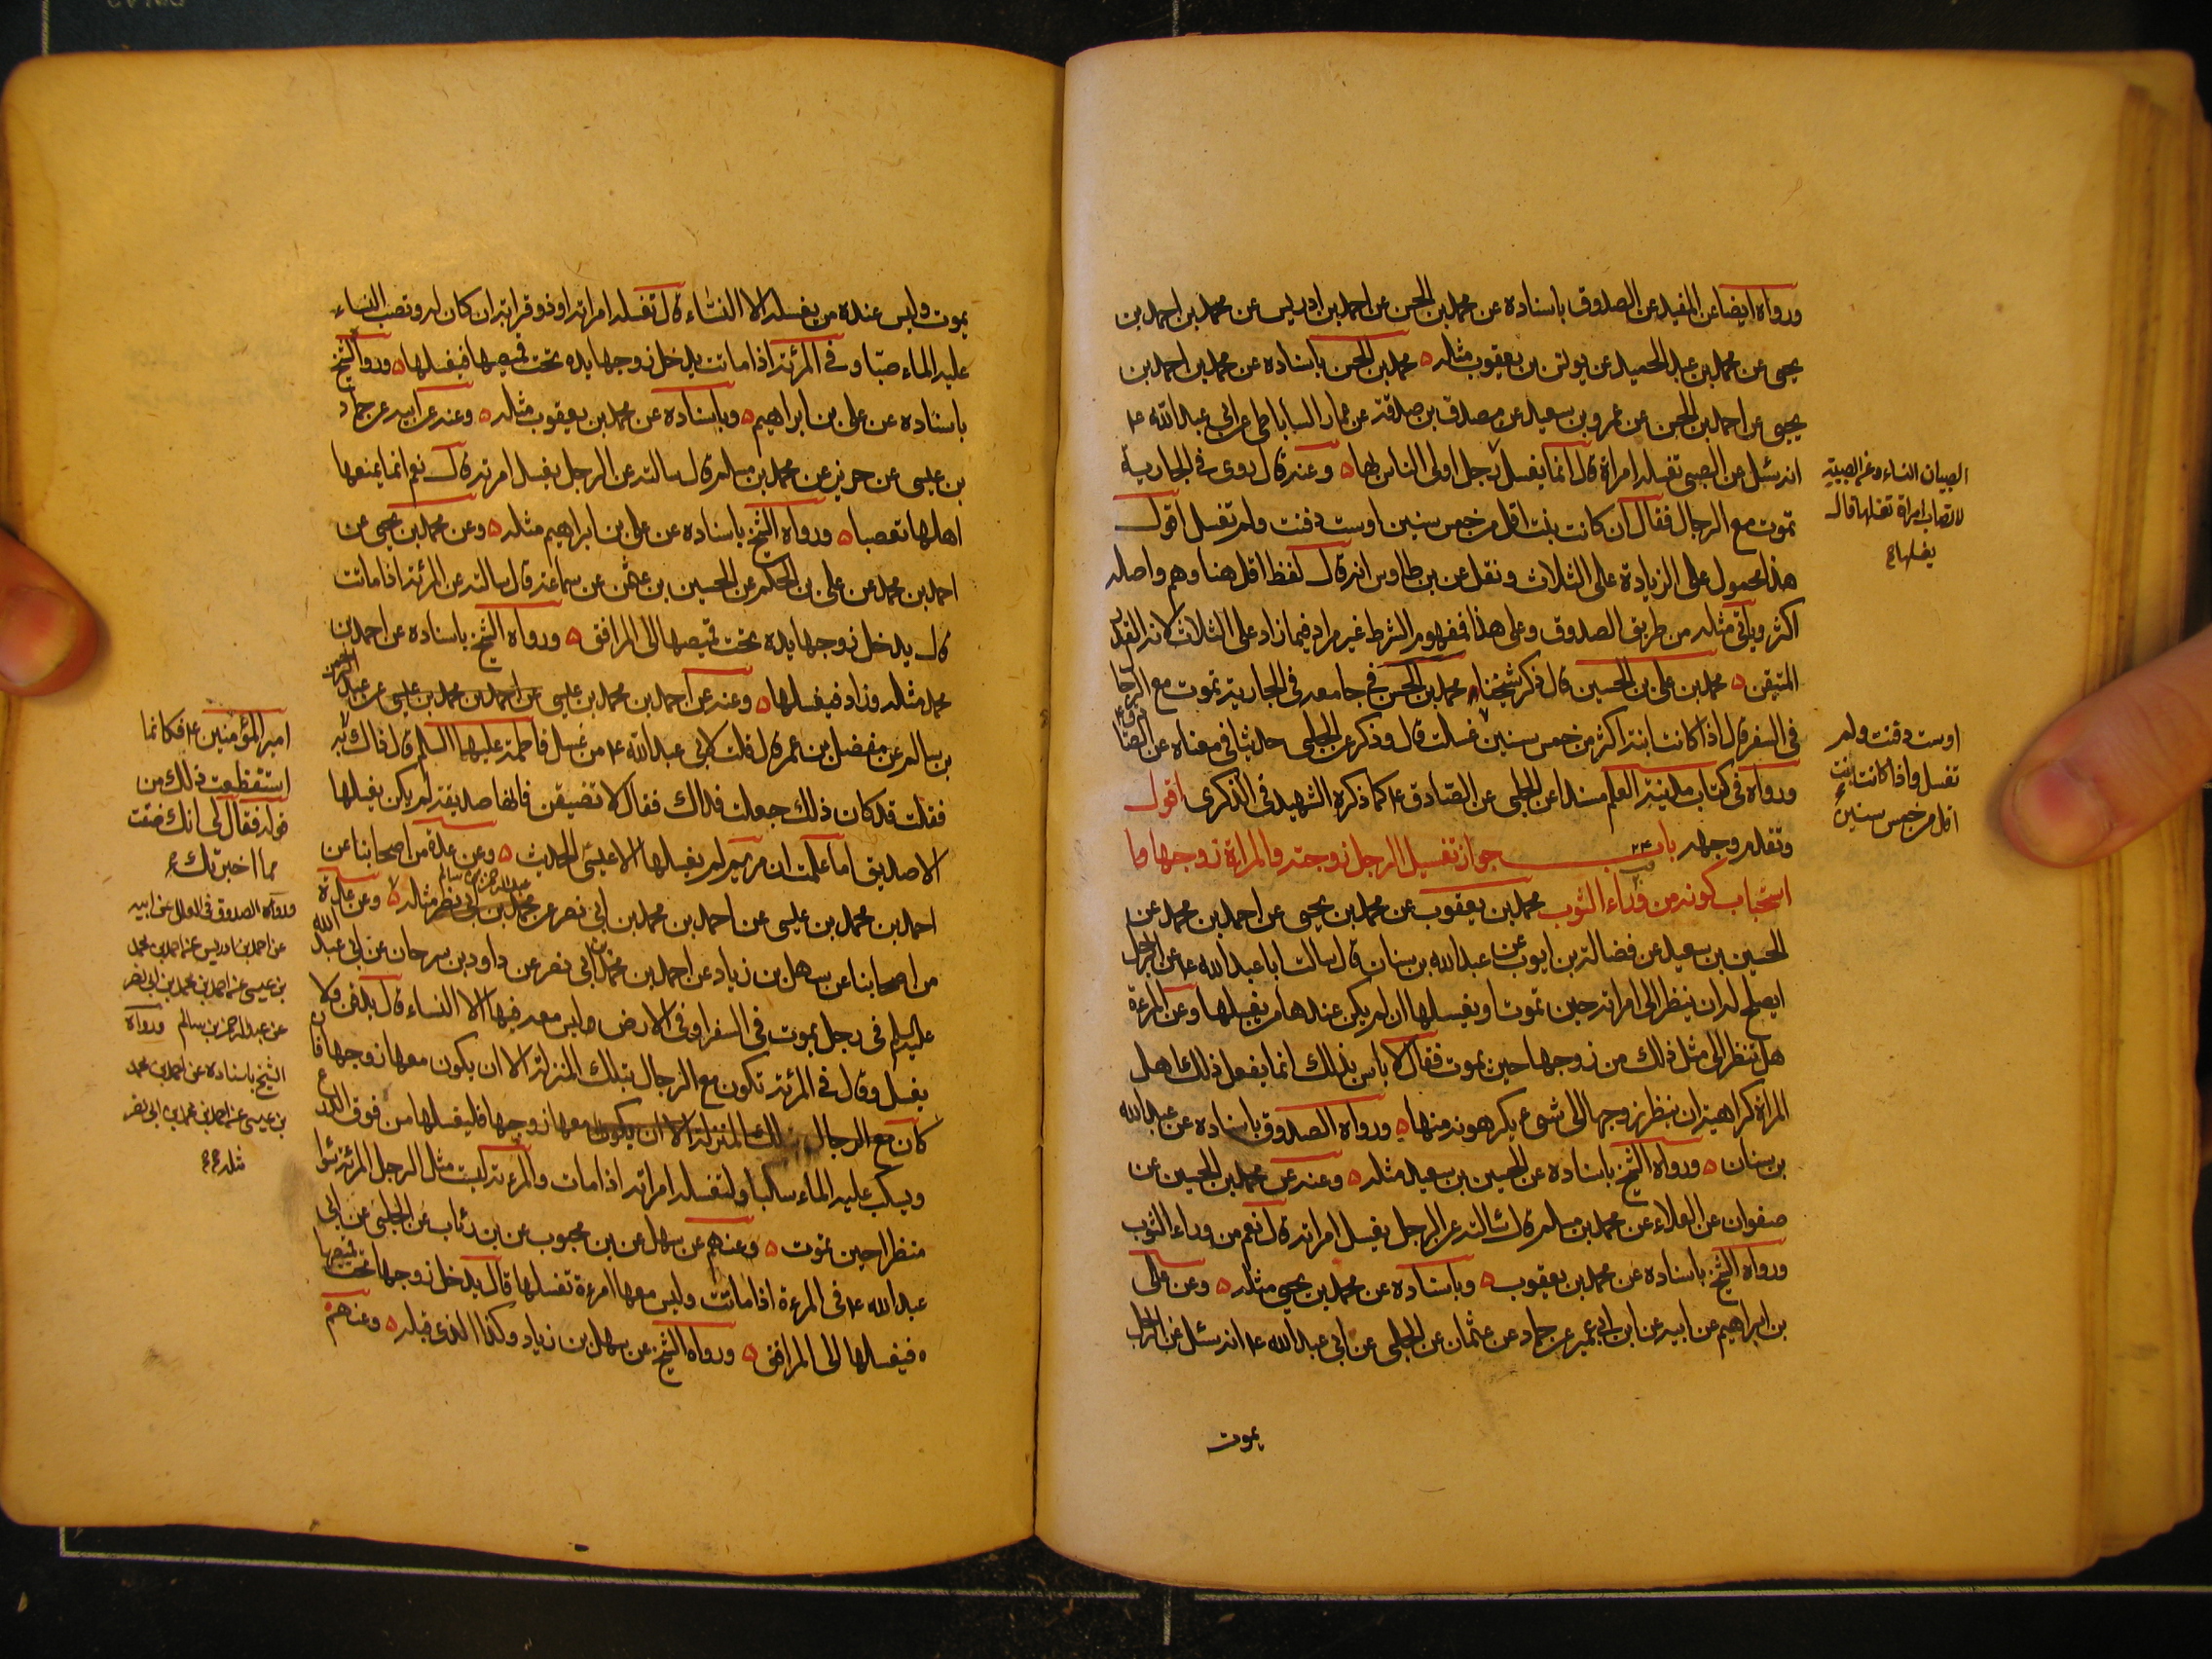 ورواه ايضا عن المفيد عن الصدوق باسناده عن محمد بن الحسن عن احمد بن ادريس عن محمد بن احمد بن
يحيى عن محمد بن عبد الحميد عن يونس بن يعقوب مثله ه محمد بن الحسن باسناده عن محمد بن احمد بن
يحيى عن احمد بن الحسن عن عمرو بن سعيد عن مصدق بن صدقة عن عمار الساباطي عن ابي عبد الله ع
انه سئل عن الصبي تغسله امراة قال انما يغسل رجل اولى الناس بها ه وعنه قال روى في الجارية
الصبيان النساء وعن الصبية
لا تصاب امراة تغسلها قال
يغسلها
تموت مع الرجال فقال ان كانت بنت اقل من خمس سنين او ست دفنت ولم تغسل اقول
هذا محمول على الزيادة على الثلاث ونقل عن بن طاوس انه قال لفظ اقل هنا وهم واصله
اكثر وياتي مثله من طريق الصدوق وعلى هذا فمفهوم الشرط غير مراد فيما زاد على الثلاث لانه القدر
المتيقن ه محمد بن علي بن الحسين قال ذكر شيخنا محمد بن الحسن في جامعه في الجارية تموت مع الرجال
في السفر قال اذا كانت ابنة اكثر من خمس سنين غسلت قال وذكر عن الحلبي حديثا في معناه عن الصادق ع
او ست دفنت ولم
تغسل واذا كانت بنت
اقل من خمس سنين
ورواه في كتاب مدينة العلم مسندا عن الحلبي عن الصادق ع كما ذكره الشهيد في الذكرى اقول
وتقدم وجهه باب ٢٤ جواز تغسيل الرجل زوجته والمراة زوجها وما
استحباب كونه من وراء الثوب محمد بن يعقوب عن محمد بن يحيى عن احمد بن محمد عن
الحسين بن سعيد عن فضالة بن ايوب عن عبد الله بن سنان قال سالت ابا عبد الله ع عن الرجل
ايصلح له ان ينظر الى امراته حين تموت او يغسلها ان لم يكن عندها من يغسلها وعن المرءة
هل تنظر الى مثل ذلك من زوجها حين يموت فقال لا باس بذلك انما يفعل ذلك اهل
المراة كراهية ان ينظر زوجها الى شيء يكرهونه منها ه ورواه الصدوق باسناده عن عبد الله
بن سنان ه ورواه الشيخ باسناده عن الحسين بن سعيد مثله ه وعنه عن محمد بن الحسين عن
صفوان عن العلاء عن محمد بن مسلم قال سالته عن الرجل يغسل امراته قال نعم من وراء الثوب
ورواه الشيخ باسناده عن محمد بن يعقوب ه وباسناده عن محمد بن يحيى مثله ه وعن علي
بن ابراهيم عن ابيه عن ابن ابي عمير عن حماد عن عثمان عن الحلبي عن ابي عبد الله ع انه سئل عن الرجل
يموت
يموت وليس عنده من يغسله الا النساء قال تغسله امراته او ذو قرابته ان كان له وتصب النساء
عليه الماء صبا وفي المرئة اذا ماتت يدخل زوجها يده تحت قميصها فيغسلها ه ورواه الشيخ
باسناده عن علي بن ابراهيم ه وباسناده عن محمد بن يعقوب مثله ه وعنه عن ابيه عن حماد
بن عيسى عن حريز عن محمد بن مسلم قال سالته عن الرجل يغسل امرته قال نعم انما يمنعها
اهلها تعصبا ه ورواه الشيخ باسناده عن علي بن ابراهيم مثله ه وعن محمد بن يحيى عن
احمد بن محمد عن علي بن الحكم عن الحسين بن عثمن عن سماعة قال سالته عن المرئة اذا ماتت
قال يدخل زوجها يده تحت قميصها الى المرافق ه ورواه الشيخ باسناده عن احمد بن
محمد مثله وزاد فيغسلها ه وعنه عن احمد بن محمد بن عيسى عن احمد بن محمد بن عيسى عن عبد الرحمن
بن سالم عن مفضل بن عمر قال قلت لابي عبد الله ع من غسل فاطمة عليها السلم قال ذاك
امير المؤمنين ع فكانما
استفظعت ذلك من
قوله فقال لي كانك ضقت
مما اخبرتك
فقلت قد كان ذلك جعلت فداك فقال لا تضيقن فانها صديقة لم يكن يغسلها
الا صديق اما علمت ان مريم لم يغسلها الا عيسى الحديث ه وعن عدة من اصحابنا عن
احمد بن محمد بن عيسى عن احمد بن محمد بن ابي نصر عن عبد الرحمن بن سالم محمد بن ابي نصر مثله ه وعن عدة
ورواه الصدوق في العلل عن ابيه
عن احمد بن ادريس عن احمد بن محمد
بن عيسى عن احمد بن محمد بن ابي نصر
عن عبد الرحمن بن سالم ورواه
الشيخ باسناده عن احمد بن محمد
بن عيسى عن احمد بن محمد بن ابي نصر
مثله
من اصحابنا عن سهل بن زياد عن احمد بن محمد بن ابي نصر عن داود بن سرحان عن ابي عبد الله
عليه السلم في رجل يموت في السفر او في الارض وليس معه فيها الا النساء قال يدفن ولا
يغسل وقال في المرئة تكون مع الرجال بتلك المنزلة الا ان يكون معها زوجها فان
كان مع الرجال بتلك المنزلة الا ان يكون معها زوجها فليغسلها من فوق الدرع
ويسكب عليه الماء سكبا ولتغسله امراته اذا مات والمرءة ليست مثل الرجل المرئة اسوء
منظرا حين تموت ه وعنهم عن سهل عن بن محبوب عن بن رئاب عن الحلبي عن ابي
عبد الله ع في المرءة اذا ماتت وليس معها امرءة تغسلها قال يدخل زوجها تحت قميصها
فيغسلها الى المرافق ه ورواه الشيخ عن سهل بن زياد وكذا الذي قبله ه وعنهم